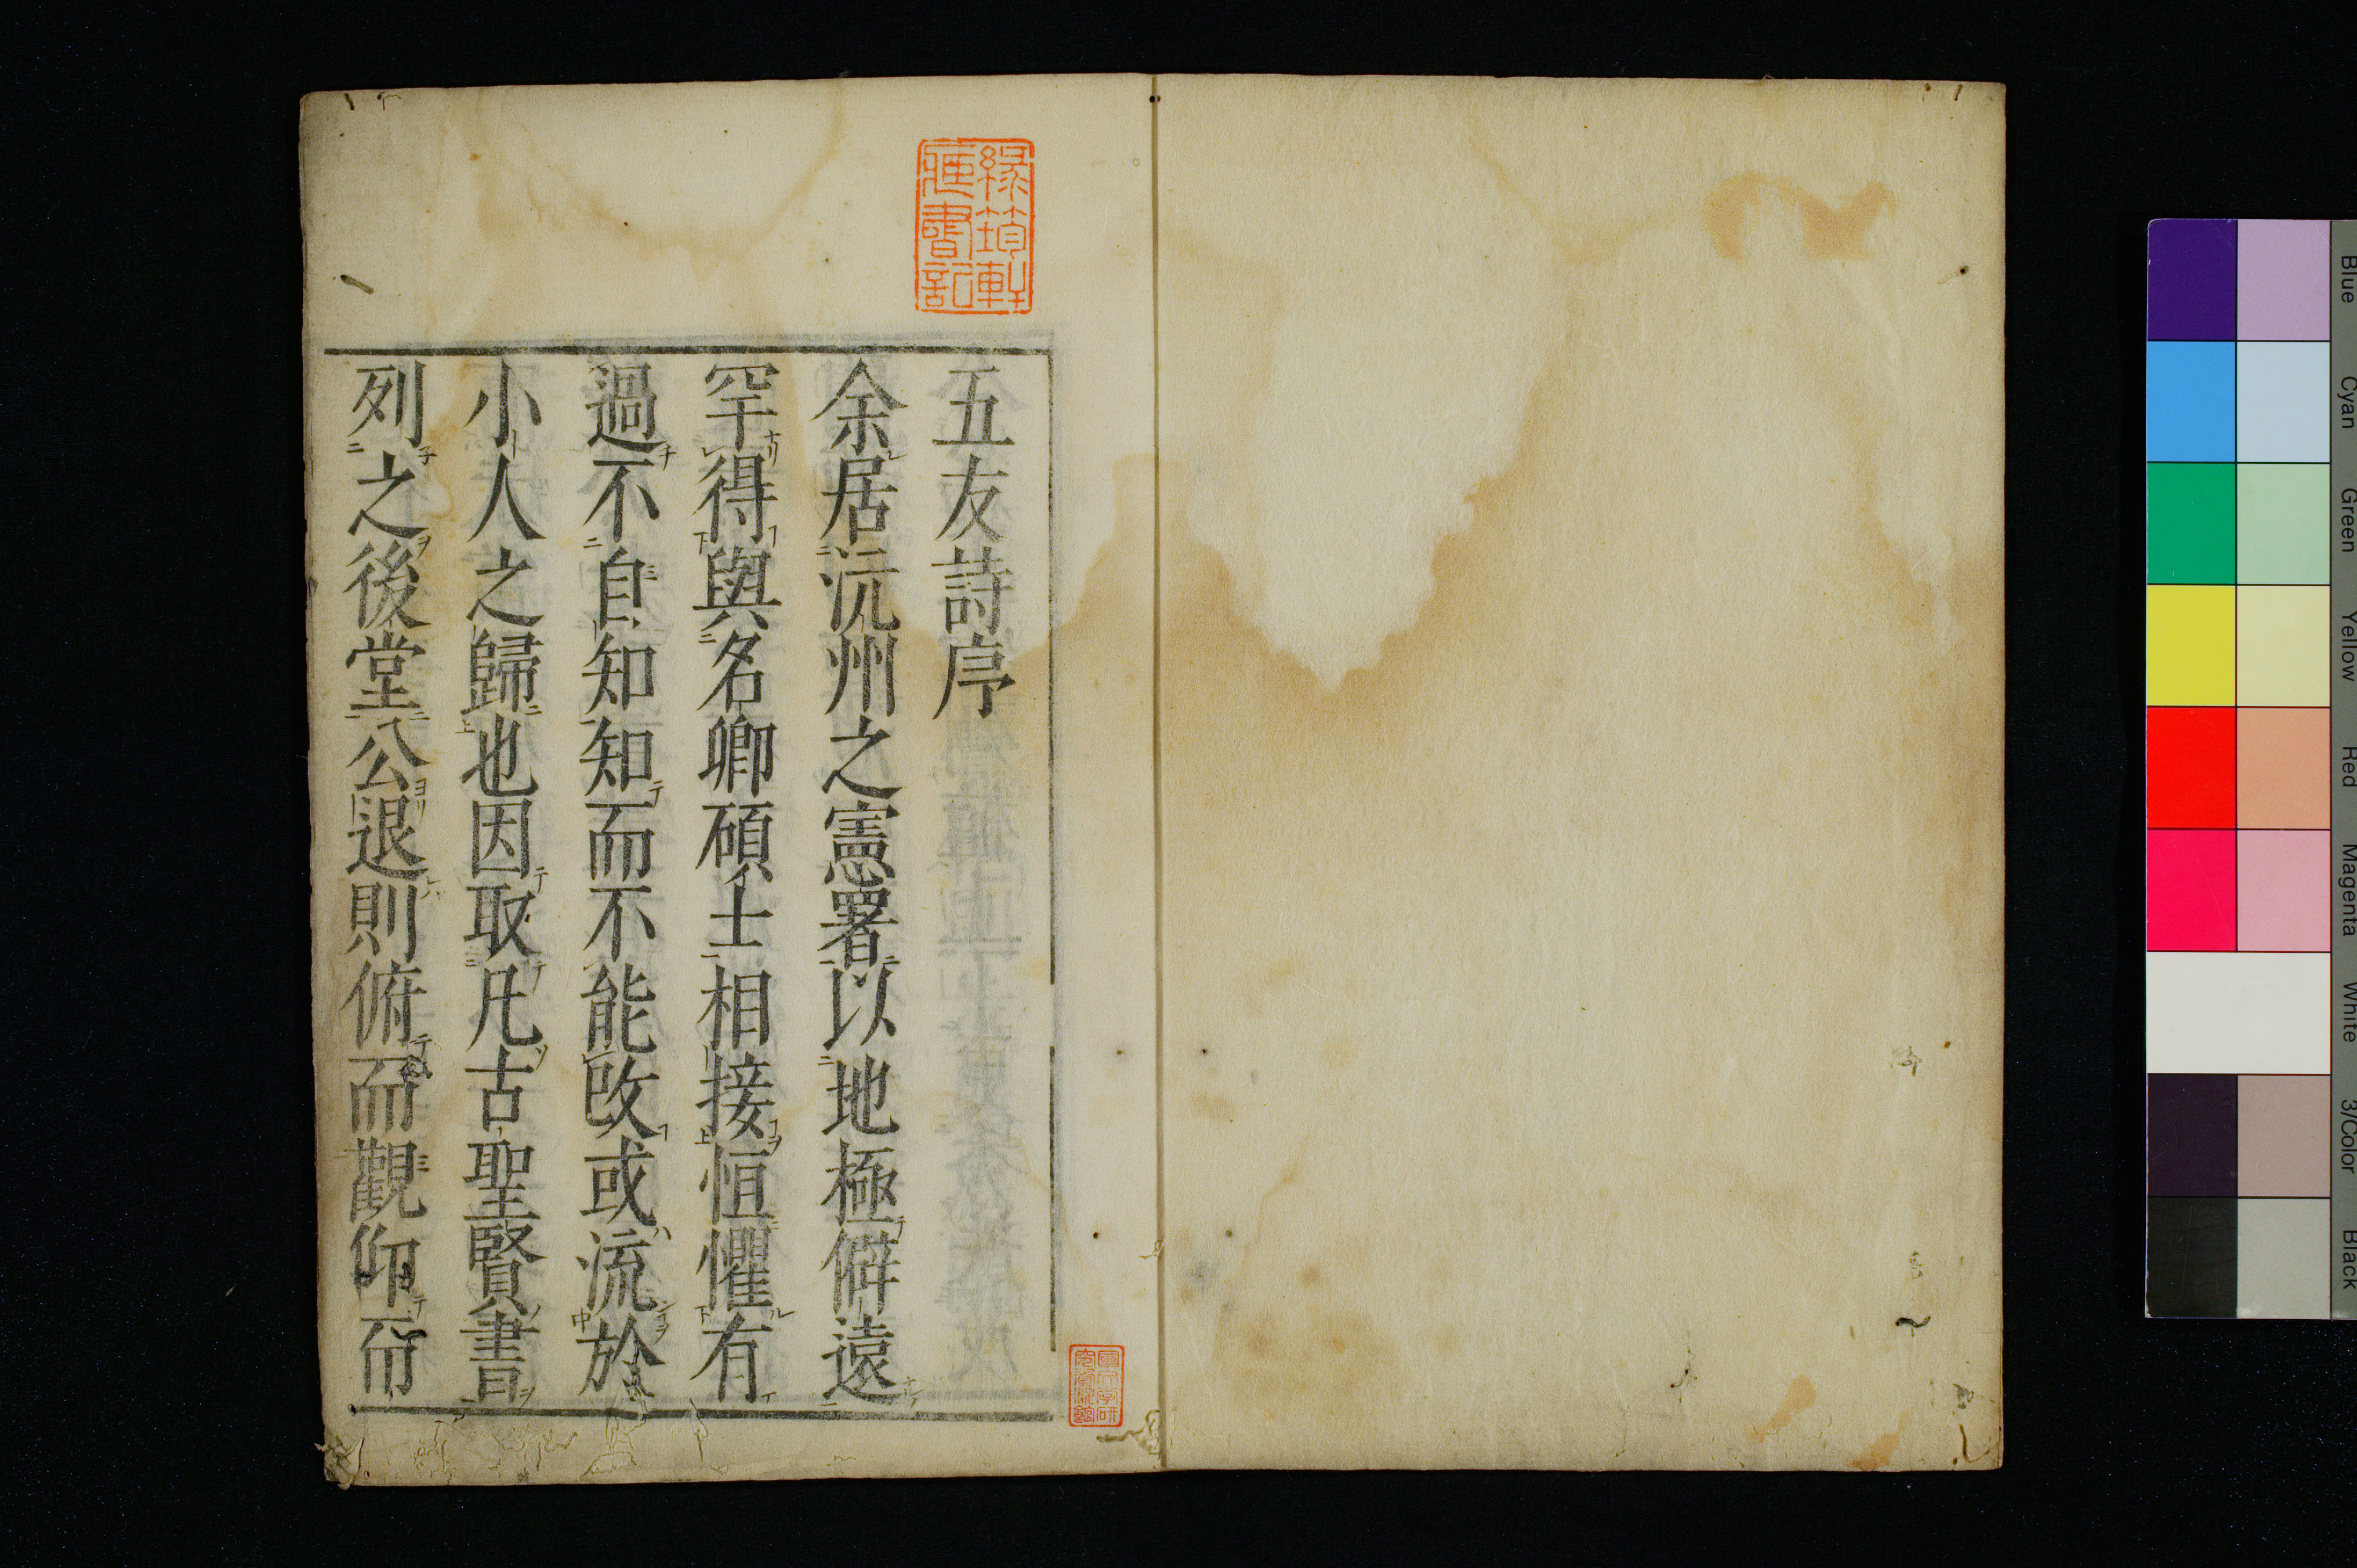 五友詩序
余居沅州之憲署以地極僻遠
罕得與名卿碩士相接恒懼有
過不自知知而不能改或流於
小人之歸也因取凡古聖賢書
列之後堂公退則俯而觀仰而
緑筠軒
蔵書記
Blue
Cyan
Green
Yellow
Red
Magenta
White
3/Color
Black